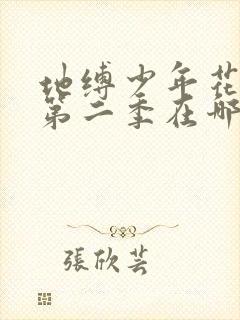 地缚少年花
第二季在哪
張欣芸